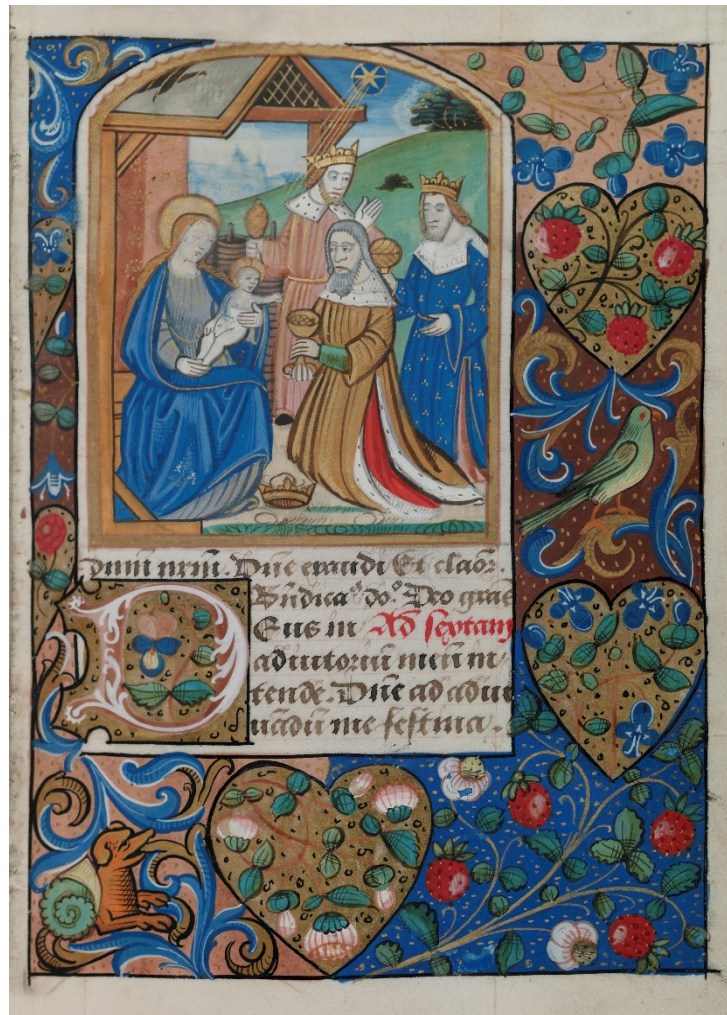 dnm nrm. Dne exaudi Et claor.
Bndica' do° Deo gras
D Eus in Ad sextam
adiutoriu meu in
tende. Dne ad adiu
uādu me festina.